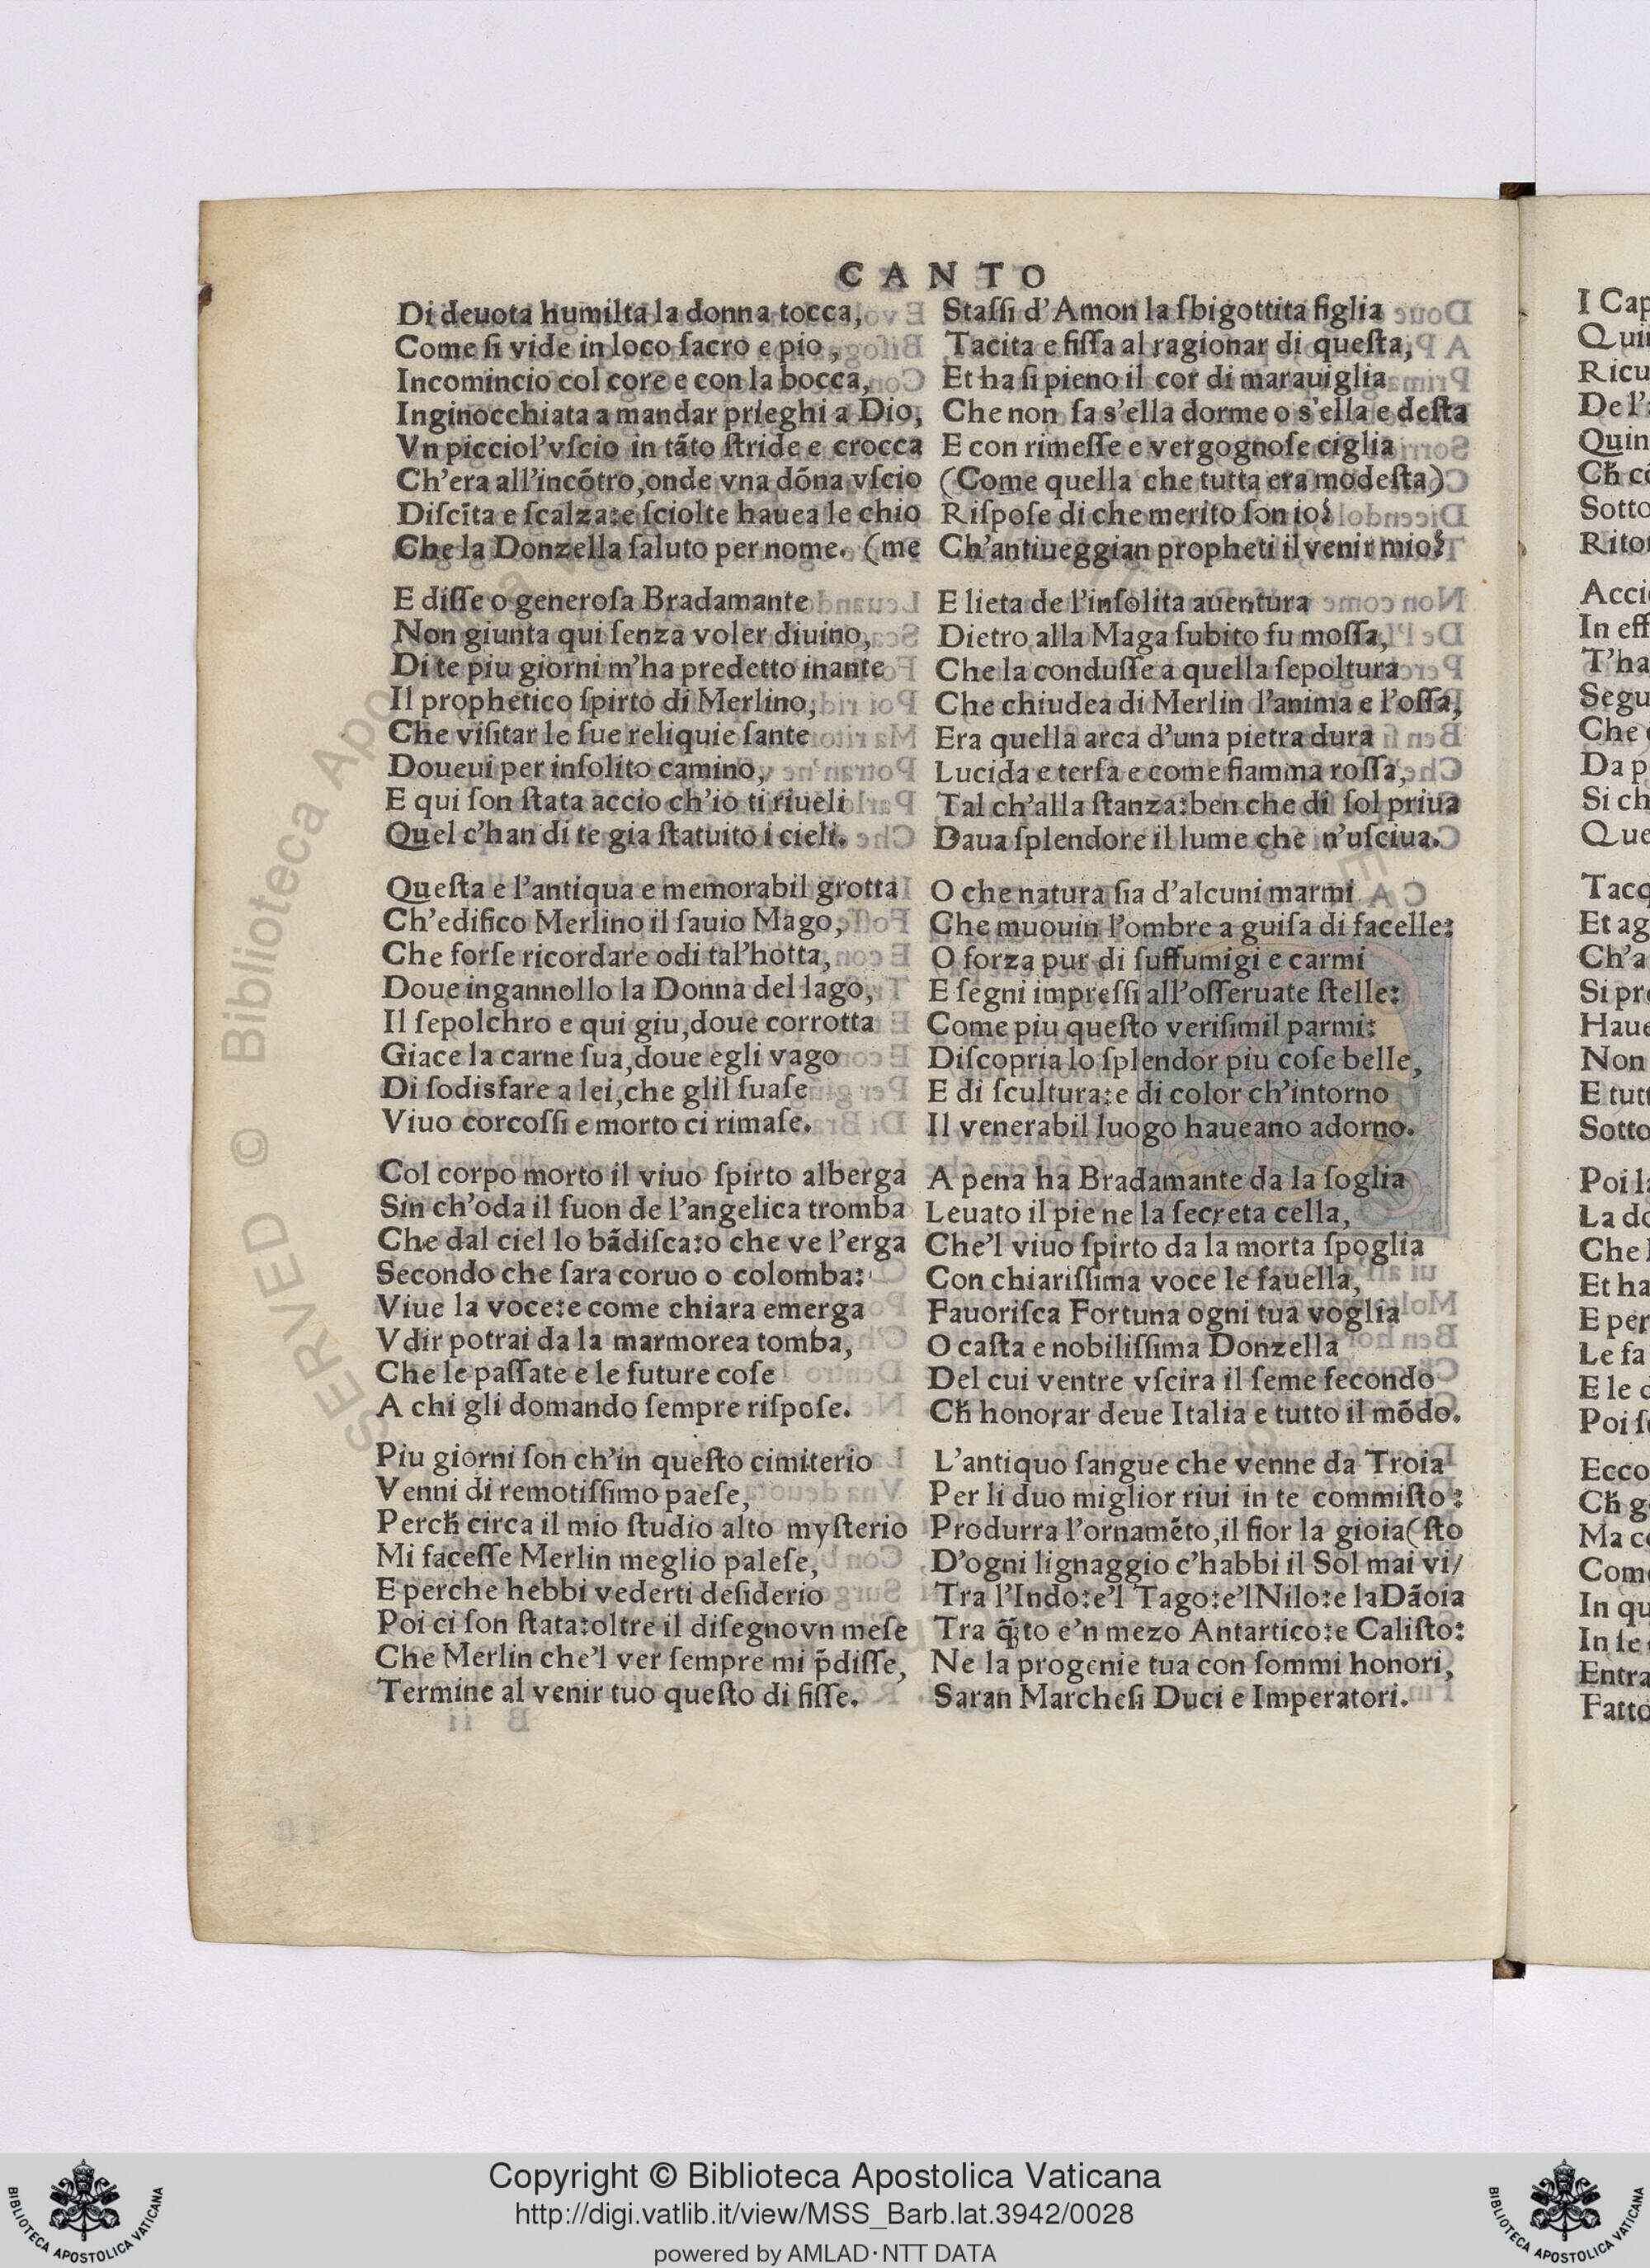 CANTO
Di deuota humilta la donna tocca,
Come ſi vide in loco ſacro e pio,
Incomincio col core e con la bocca,
Inginocchiata a mandar prieghi a Dio,
Vn picciol'vſcio in tãto ſtride e crocca
Ch'era all'incõtro,onde vna dõna vſcio
Diſcĩta e ſcalza:e ſciolte hauea le chio
Che la Donzella ſaluto per nome. (me
E diſſe o generoſa Bradamante
Non giunta qui ſenza voler diuino,
Di te piu giorni m'ha predetto inante
Il prophetico ſpirto di Merlino,
Che viſitar le ſue reliquie ſante
Doueui per inſolito camino,
E qui ſon ſtata accio ch'io ti riueli
Quel c'han di te gia ſtatuito i cieli.
Queſta e l'antiqua e memorabil grotta
Ch'edifico Merlino il ſauio Mago,
Che forſe ricordare odi tal'hotta,
Doue ingannollo la Donna del lago,
Il ſepolchro e qui giu,doue corrotta
Giace la carne ſua,doue egli vago
Di ſodisfare a lei,che glil ſuaſe
Viuo corcoſſi e morto ci rimaſe.
Col corpo morto il viuo ſpirto alberga
Sin ch'oda il ſuon de l'angelica tromba
Che dal ciel lo bãdiſca:o che ve l'erga
Secondo che ſara coruo o colomba:
Viue la voce:e come chiara emerga
Vdir potrai da la marmorea tomba,
Che le paſſate e le future coſe
A chi gli domando ſempre riſpoſe.
Piu giorni ſon ch'in queſto cimiterio
Venni di remotiſſimo paeſe,
Perch̃ circa il mio ſtudio alto myſterio
Mi faceſſe Merlin meglio paleſe,
E perche hebbi vederti deſiderio
Poi ci ſon ſtata:oltre il diſegno vn meſe
Che Merlin che'l ver ſempre mi p̃diſſe,
Termine al venir tuo queſto di fiſſe.
Staſſi d'Amon la ſbigottita figlia
Tacita e fiſſa al ragionar di queſta,
Et ha ſi pieno il cor di marauiglia
Che non ſa s'ella dorme o s'ella e deſta
E con rimeſſe e vergognoſe ciglia
(Come quella che tutta era modeſta)
Riſpoſe di che merito ſon io?
Ch'antiueggian propheti il venir mio?
E lieta de l'inſolita auentura
Dietro alla Maga ſubito fu moſſa,
Che la conduſſe a quella ſepoltura
Che chiudea di Merlin l'anima e l'oſſa,
Era quella arca d'una pietra dura
Lucida e terſa e come fiamma roſſa,
Tal ch'alla ſtanza:ben che di ſol priua
Daua ſplendore il lume che n'uſciua.
O che natura ſia d'alcuni marmi
Che muouin l'ombre a guiſa di facelle:
O forza pur di ſuffumigi e carmi
E ſegni impreſſi all'oſſeruate ſtelle:
Come piu queſto veriſimil parmi:
Diſcopria lo ſplendor piu coſe belle,
E di ſcultura:e di color ch'intorno
Il venerabil luogo haueano adorno.
A pena ha Bradamante da la ſoglia
Leuato il pie ne la ſecreta cella,
Che'l viuo ſpirto da la morta ſpoglia
Con chiariſſima voce le fauella,
Fauoriſca Fortuna ogni tua voglia
O caſta e nobiliſſima Donzella
Del cui ventre vſcira il ſeme fecondo
Ch̃ honorar deue Italia e tutto il mõdo.
L'antiquo ſangue che venne da Troia
Per li duo miglior riui in te commiſto:
Produrra l'ornamẽto,il fior la gioia(ſto
D'ogni lignaggio c'habbi il Sol mai vi/
Tra l'Indo:e'l Tago:e'l Nilo:e la Dãoia
Tra q̃to e'n mezo Antartico:e Caliſto:
Ne la progenie tua con ſommi honori,
Saran Marcheſi Duci e Imperatori.
I Cap
Quin
Ricu
De l'a
Quin
Ch̃ cõ
Sotto
Ritor
Accio
In eff
T'ha
Segu
Che
Da p
Si ch
Que
Tacq
Et ag
Ch'a
Si pre
Haue
Non
E tutt
Sotto
Poi la
La do
Che l
Et ha
E per
Le fa
E le d
Poi ſ
Ecco
Ch̃ g
Ma c
Com
In qu
In ſe
Entra
Fatto
SERVED © Biblioteca Apo
BIBLIOTECA APOSTOLICA VATICANA
Copyright © Biblioteca Apostolica Vaticana
http://digi.vatlib.it/view/MSS_Barb.lat.3942/0028
powered by AMLAD·NTT DATA
BIBLIOTECA APOSTOLICA VATICANA